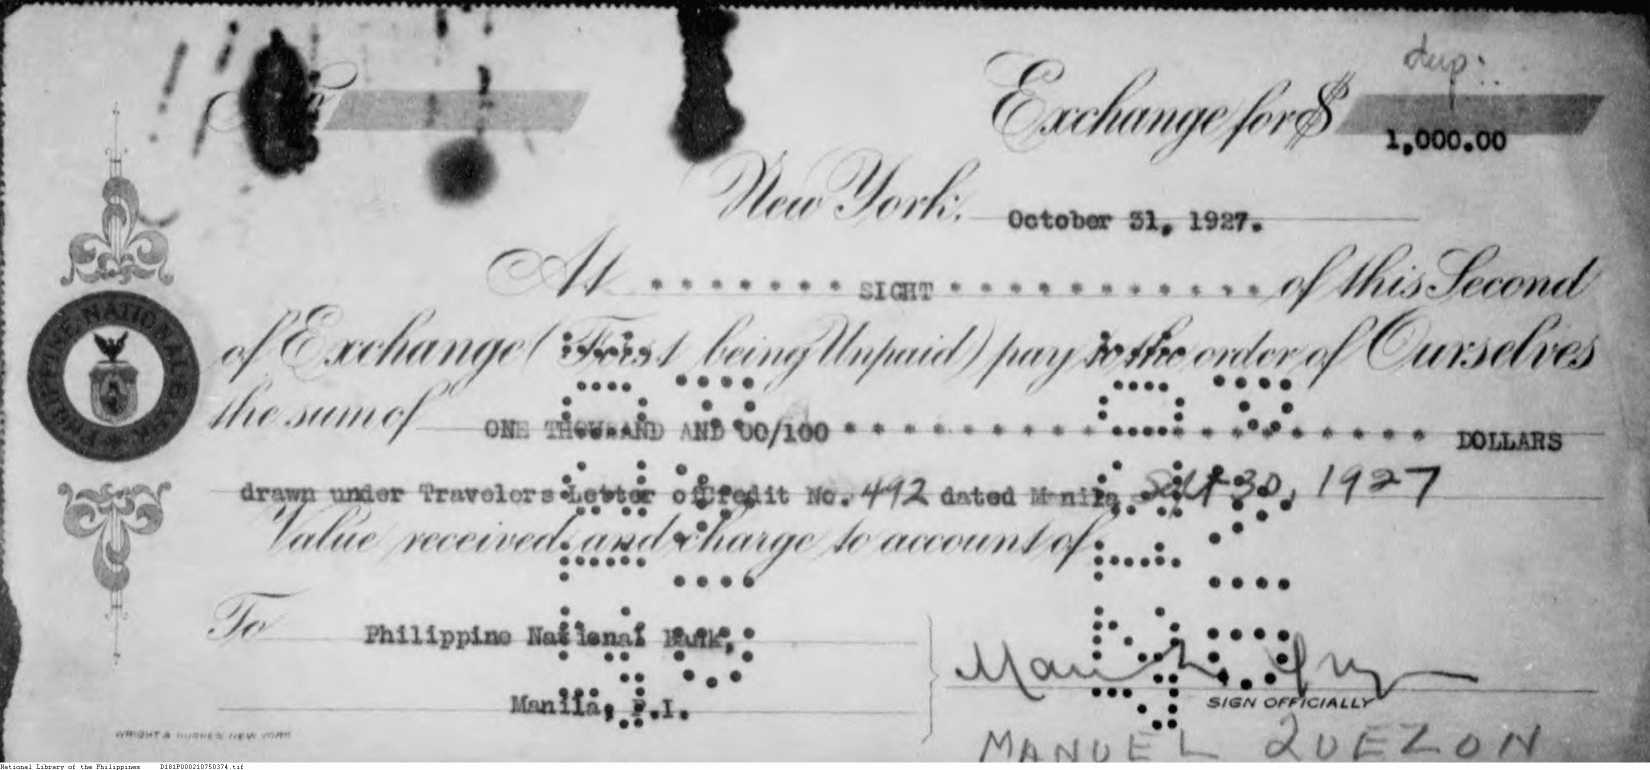 dup:
Exchange for $ 1,000.00
New York, October 31, 1927.
At SIGHT of this Second
of Exchange (First being Unpaid) pay to the order of Ourselves
the sum of ONE THOUSAND AND 00/100 DOLLARS
drawn under Travelers Letter of Credit No. 492 dated Manila, Sept 30, 1927
Value received and charge to account of
PHILIPPINE NATIONAL BANK
To Philippine National Bank,
Manila, P.I.
SIGN OFFICIALLY
MANUEL QUEZON
WRIGHT & HUGHES NEW YORK
National Library of the Philippines D181P000210750374.tif